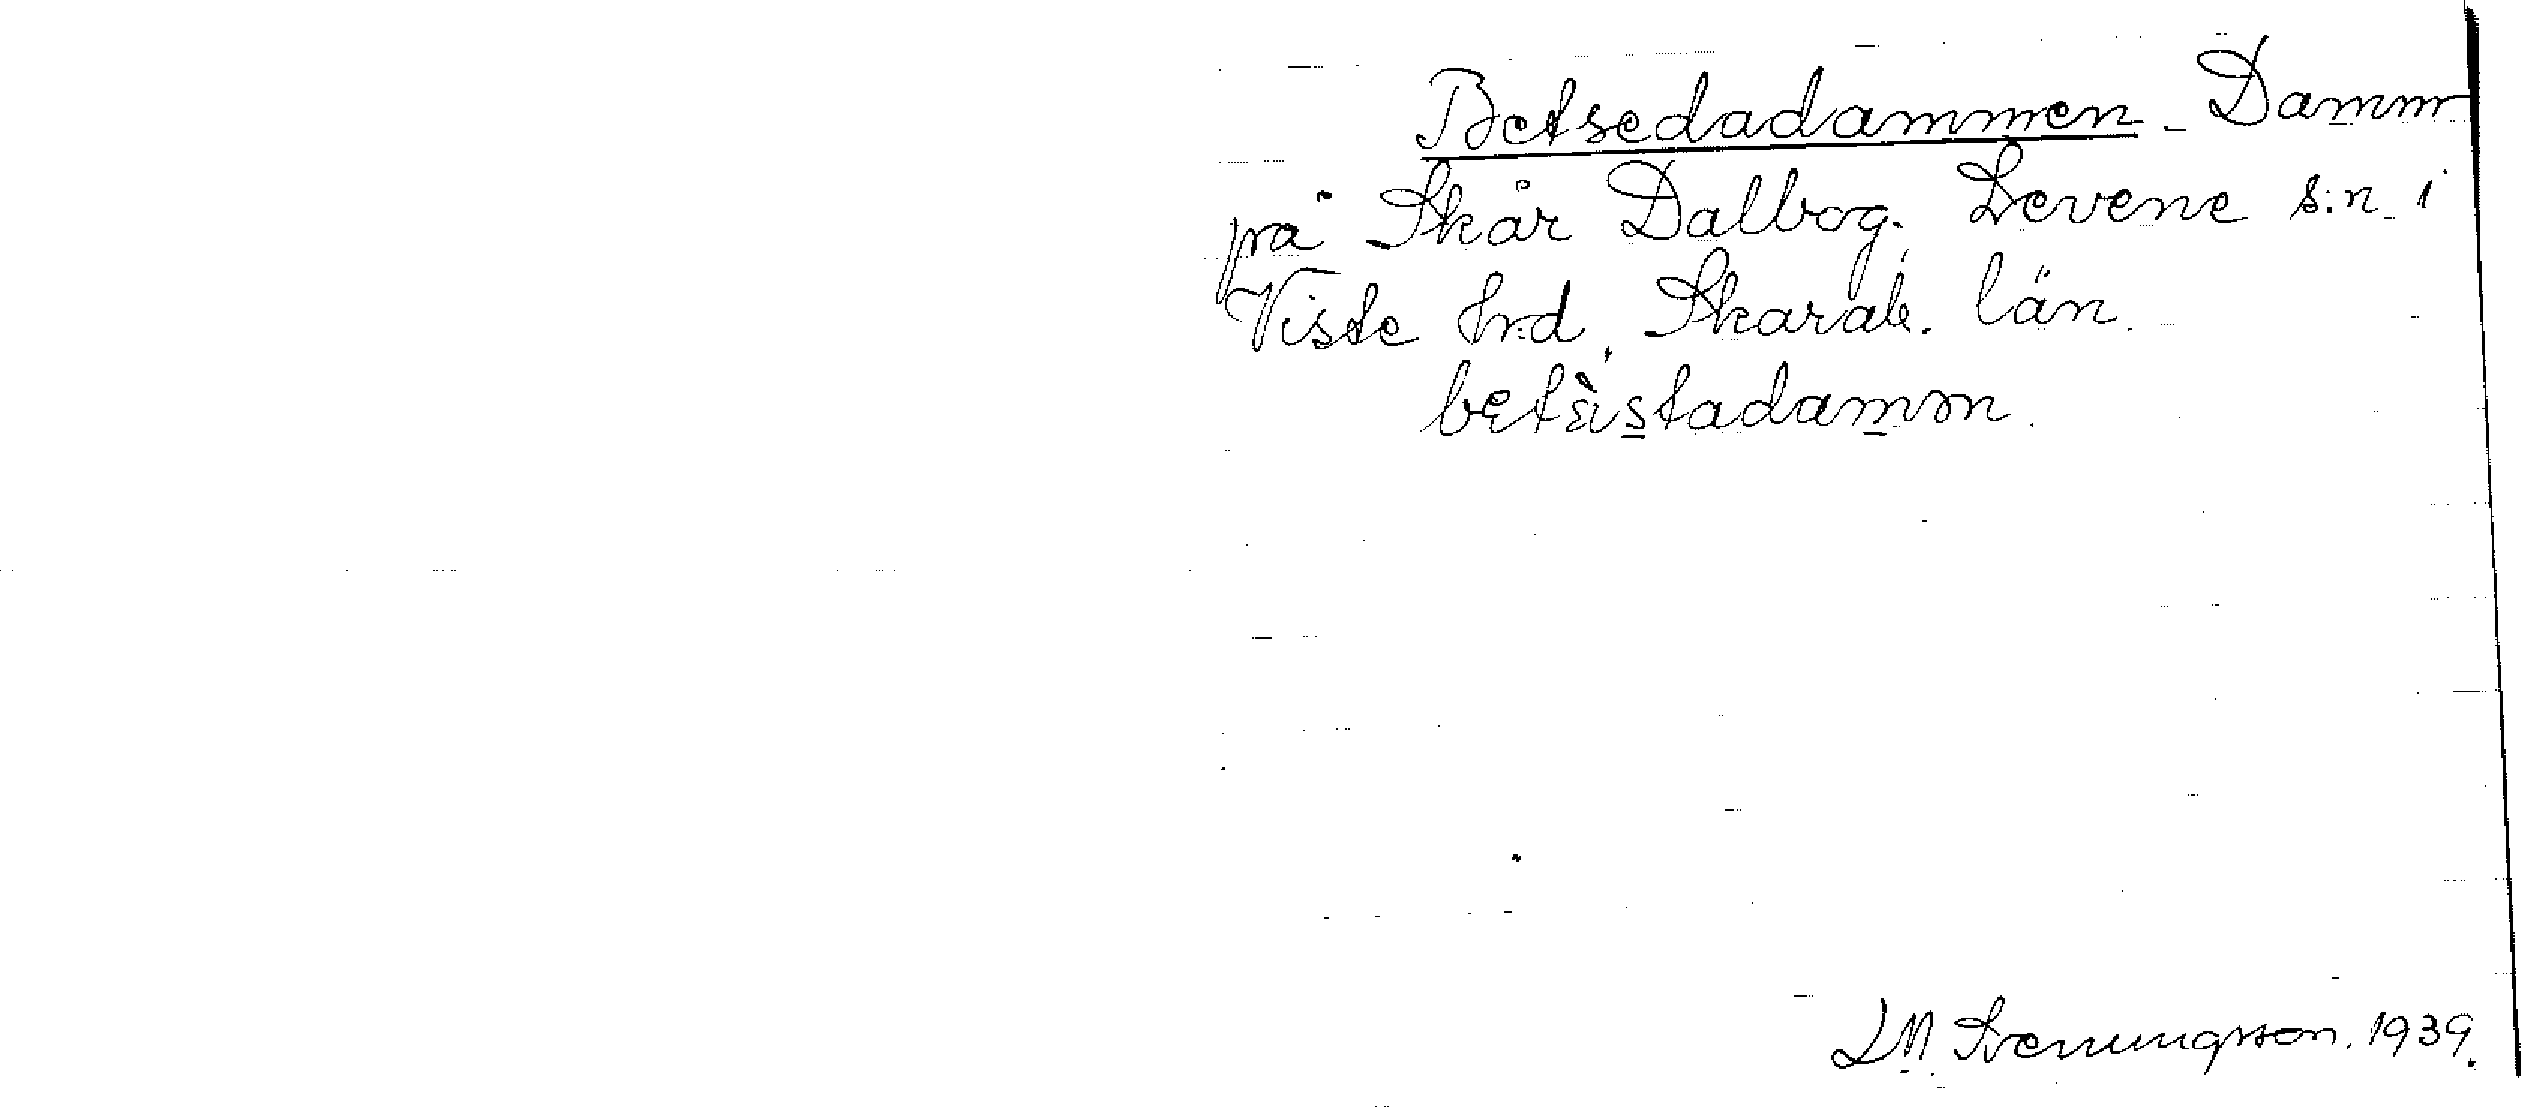 Betsedadammen. Damm
på Skår Dalbog. Levene s:n i
Viste hrd, Skarab. län.
betsistadamm.
LM Svenungsson. 1939.